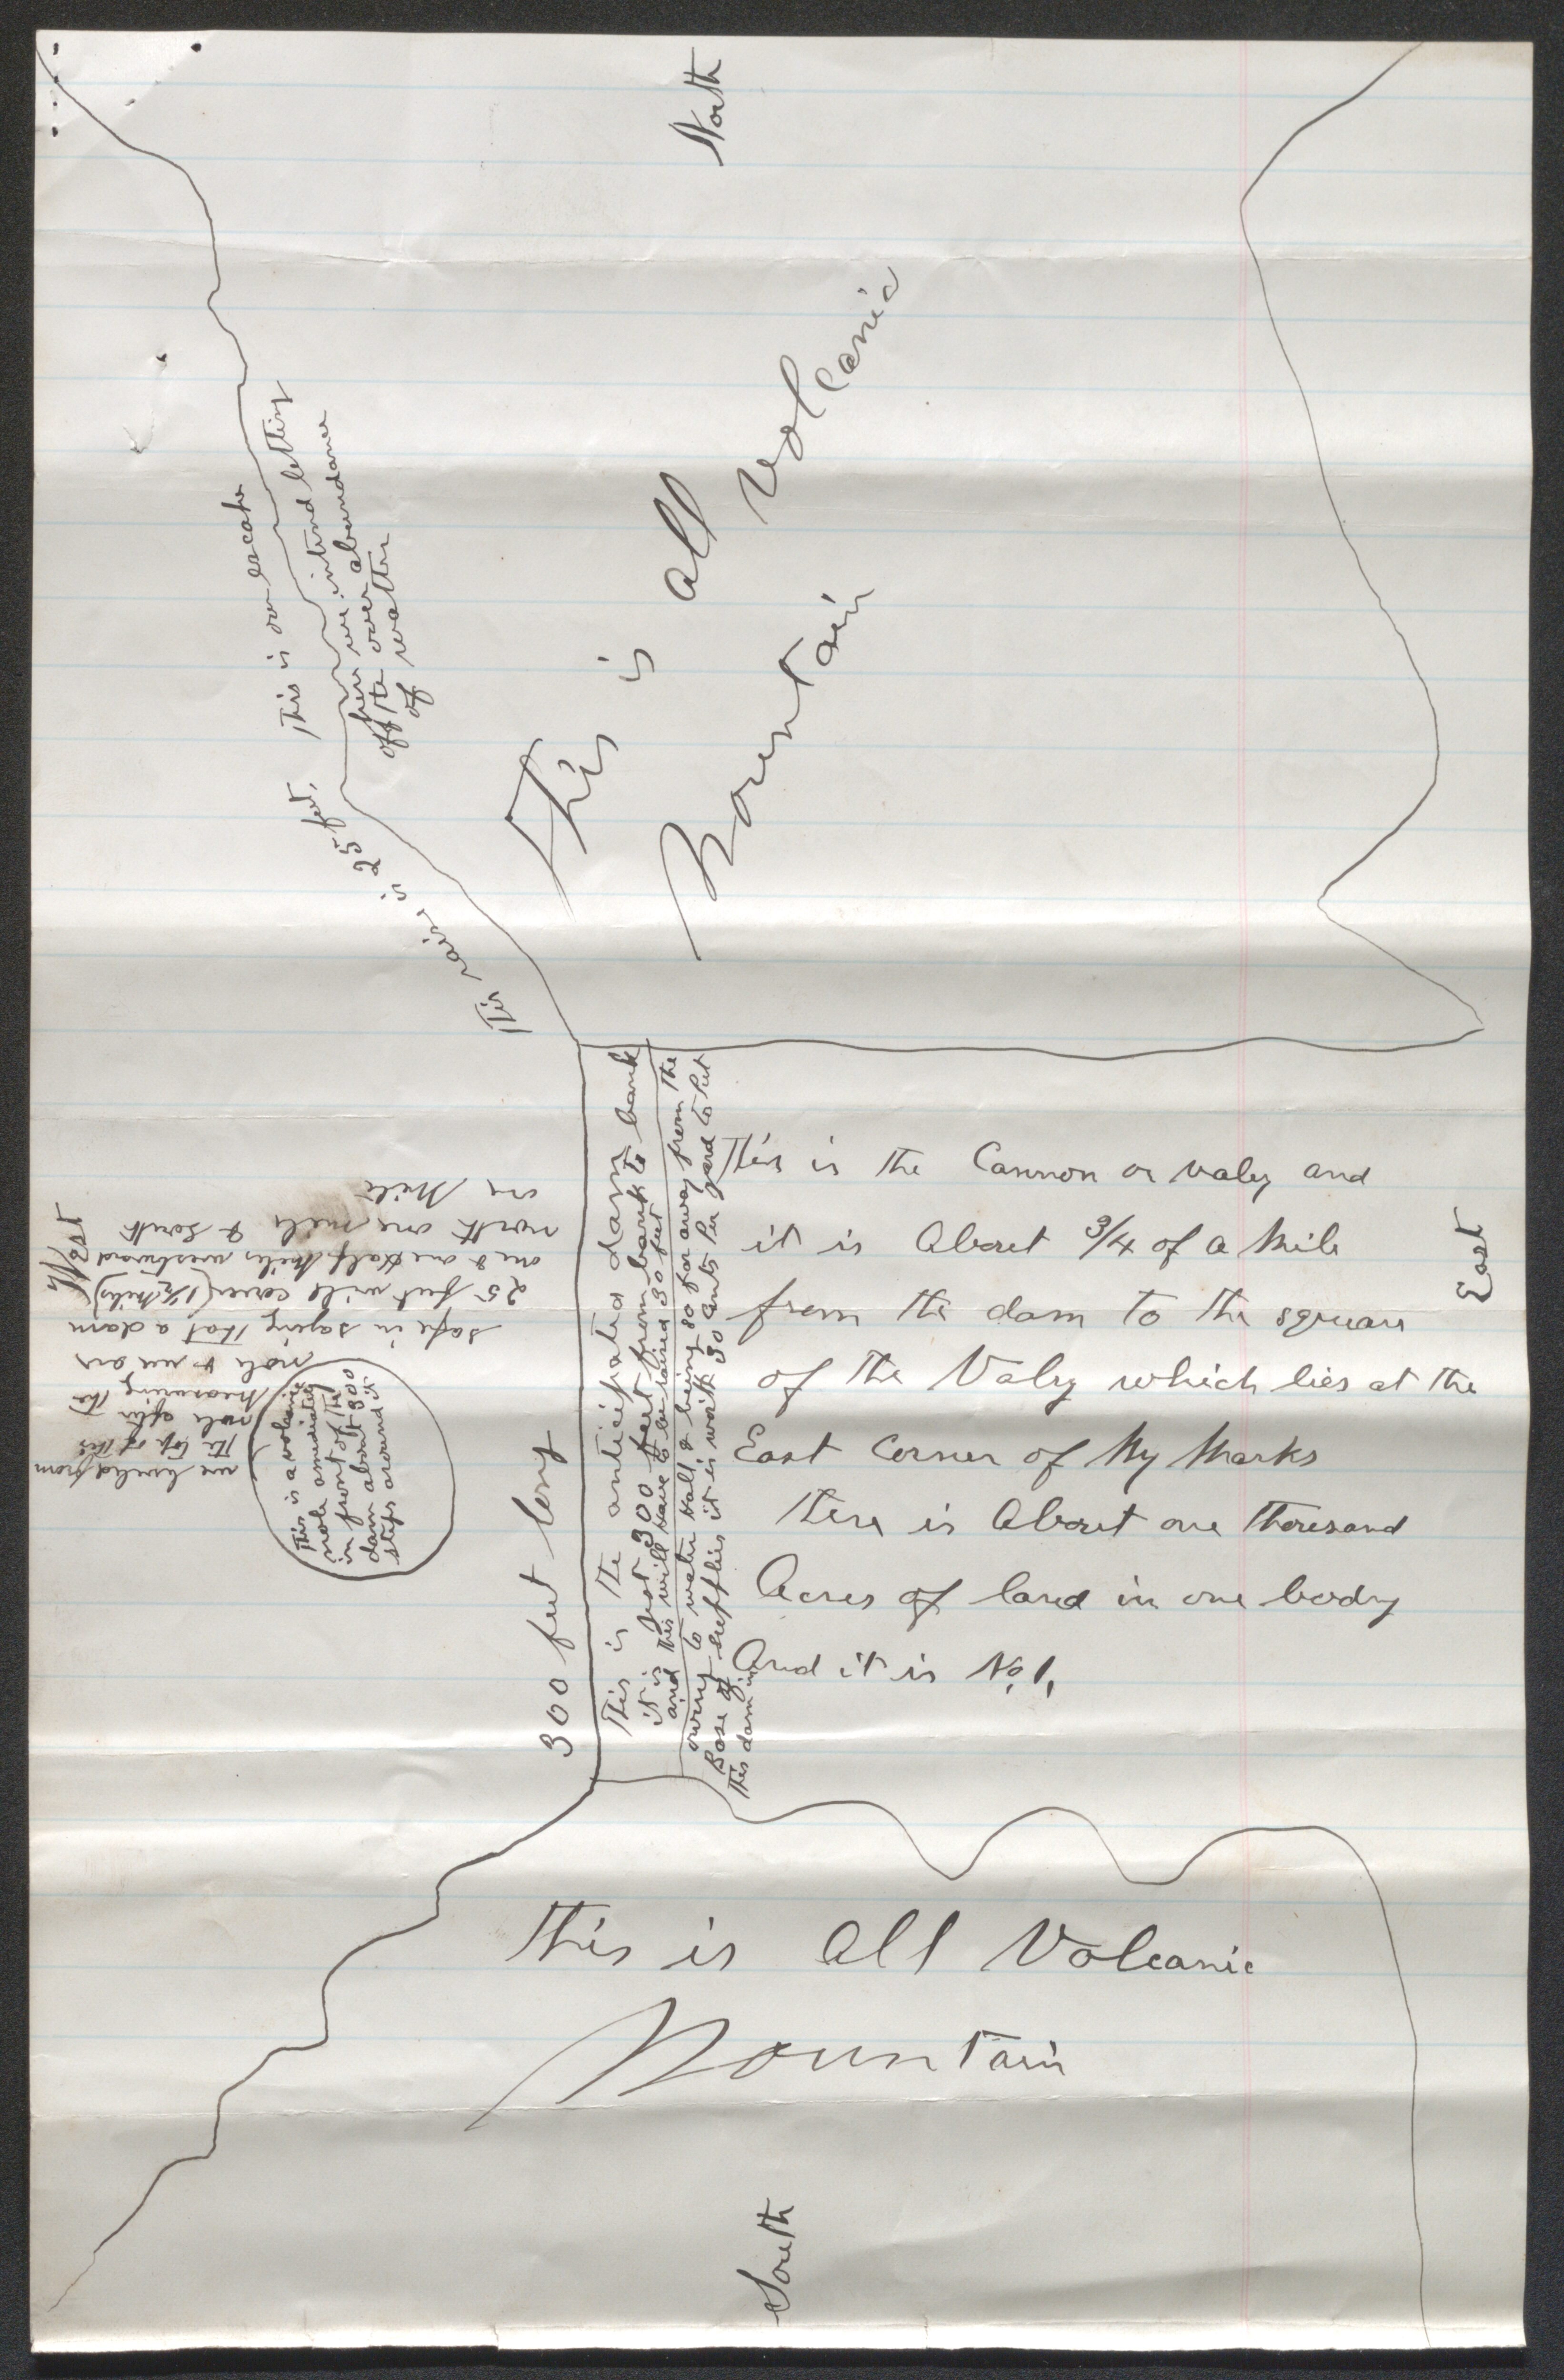 North
This is our escake
This is 25 feet,
here we intend letting
off the over abundance
of watter
This raise is 25 feet,
This is all volcanic
Mountain
West
we leveled from
the top of this
mole after measuring the
mole & we are
safe in saying that a dam
25 feet will cover (1½ miles)
one & one half miles westward
north one mile & South
one Mile
This is a volcanic
mole amediately
in front of the
dam about 300
steps around it
300 feet long
This is the anticipated dam
it is just 300 feet from bank to bank
and this will have to be raised 30 feet
owing to water Hall & being so far away from the
Base of supplies it is worth 30 cents per yard to Put
this dam in
This is the Cannon or valey and
it is About 3/4 of a Mile
from the dam to the square
of the Valey which lies at the
East Corner of My Marks
there is About one thousand
Acres of land in one body
And it is No. 1.
East
This is All Volcanic
Mountain
South